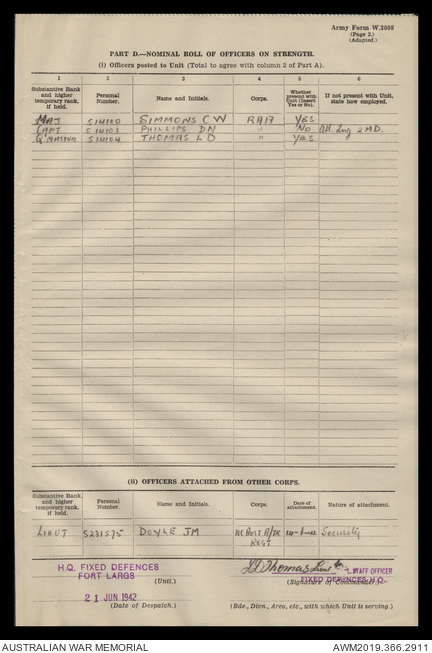 Army Form W.3008
(Page 2.)
(Adapted.)
PART D.—NOMINAL ROLL OF OFFICERS ON STRENGTH.
(i) Officers posted to Unit (Total to agree with column 2 of Part A).
1 2 3 4 5 6
Substantive Rank and higher temporary rank, if held. Personal Number. Name and Initials. Corps. Whether present with Unit (Insert Yes or No). If not present with Unit, state how employed.
MAJ 514100 SIMMONS C W RAA YES
CAPT 514103 PHILLIPS DN " NO Att. 2 MD.
Q'MASTER 514104 THOMAS L D " YES
(ii) OFFICERS ATTACHED FROM OTHER CORPS.
Substantive Rank, and higher temporary rank, if held. Personal Number. Name and Initials. Corps. Date of attachment. Nature of attachment.
LIEUT S231575 DOYLE JM A/TK Security
REGT
H.Q. FIXED DEFENCES
FORT LARGS
(Unit.)
LD Thomas Lieut
STAFF OFFICER
(Signature of Commander.)
FIXED DEFENCES H.Q.
21 JUN 1942
(Date of Despatch.)
(Bde., Divn., Area, etc., with which Unit is serving.)
AUSTRALIAN WAR MEMORIAL
AWM2019.366.2911